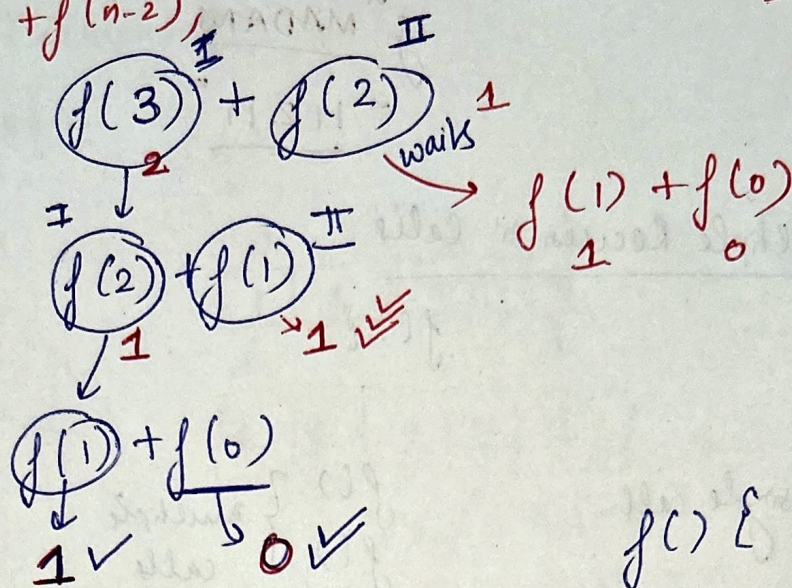 +f(n-2),
I II
f(3) + f(2) 1
2 waits
f(1) + f(0)
1 0
I II
f(2) + f(1)
1 1
f(1) + f(0)
1 0
f() {